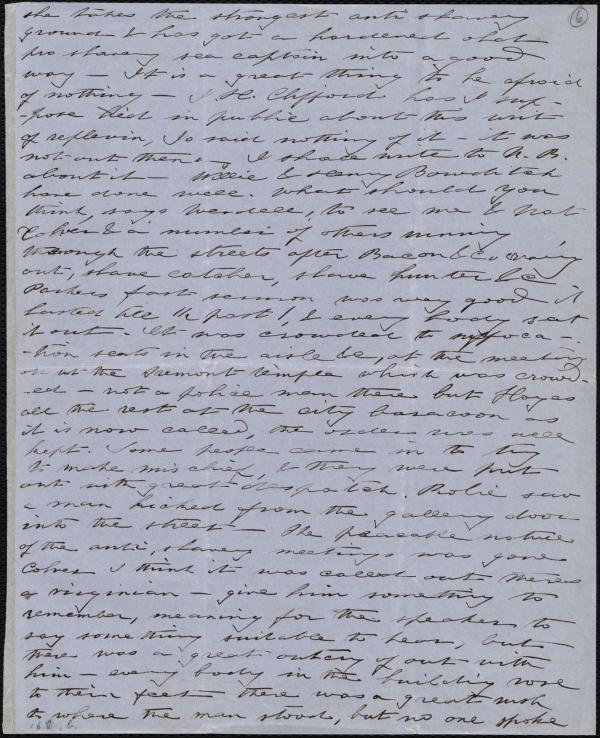 6
she takes the strongest anti slavery
ground & has got a hardened old
pro slavery sea captain into a good
way – It is a great thing to be afraid
of nothing – J. H. Clifford has I sup-
-pose lied in public about this writ
of replevin, Jo said nothing of it – it was
not out then – I shall write to N. B.
about it – Willie & Henry Bowditch
have done well. What should you
think, says Wendell, to see me & Nat
Colver & a number of others running
through the streets after Bacon & Co crying
out, slave catcher, slave hunter &c
Parkers fast sermon was very good it
lasted till ½ past 1, & every body sat
it out – It was crowded to suffoca-
-tion seats in the aisle &c, at the meeting
at the Tremont temple which was crowd-
-ed – not a police man there but Hayes
all the rest at the city baracoon as
it is now called, the order was well
kept. Some people came in to try
to make mischief, & they were put
out with great despatch. Rolie saw
a man kicked from the gallery door
into the street – The peaceable notice
of the anti, slavery meetings was gone
Colver I think it was called out theres
a virginian – give him something to
remember, meaning for the speaker to
say something suitable to hear, but
there was a great outcry of out with
him – every body in the building rose
to their feet there was a great rush
to where the man stood, but no one spoke